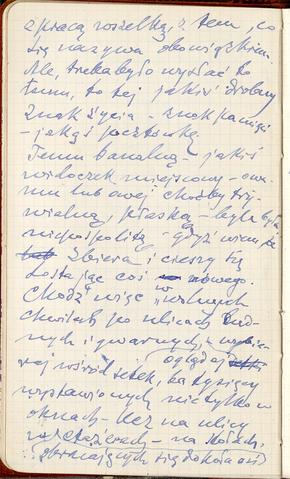 z pracą wszelką, z tem, co
się nazywa obowiązkiem.
Ale, trzeba było wysłać to
temu, to tej jakiś drobny
znak życia - znak pamięci
- jakąś pocztówkę.
Temu banalną - jakiś
widoczek miejscowy - owe-
mu lub owej choćby try-
wialną, płaską - byle była
niepospolitą - gdyż wiem, że
zbiera i cieszy się
dostając coś nowego.
Chodź więc w wolnych
chwilach po ulicach lud-
nych i gwarnych,
oglądaj
wśród setek, ba tysięcy
wystawionych nie tylko w
oknach - lecz na ulicy
na stołach,
obracających się dokoła osi